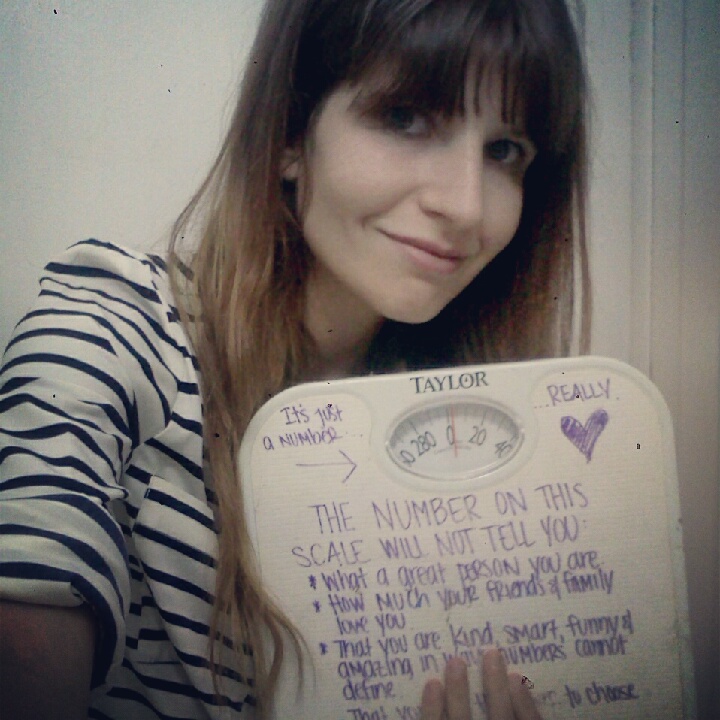 TAYLOR
It's just
a NUMBER...
REALLY.
280 0 20
THE NUMBER ON THIS
SCALE WILL NOT TELL YOU:
* What a great person you are.
* How much your friends & family
love you
* That you are kind, smart, funny &
amazing in ways numbers cannot
define
That you to choose